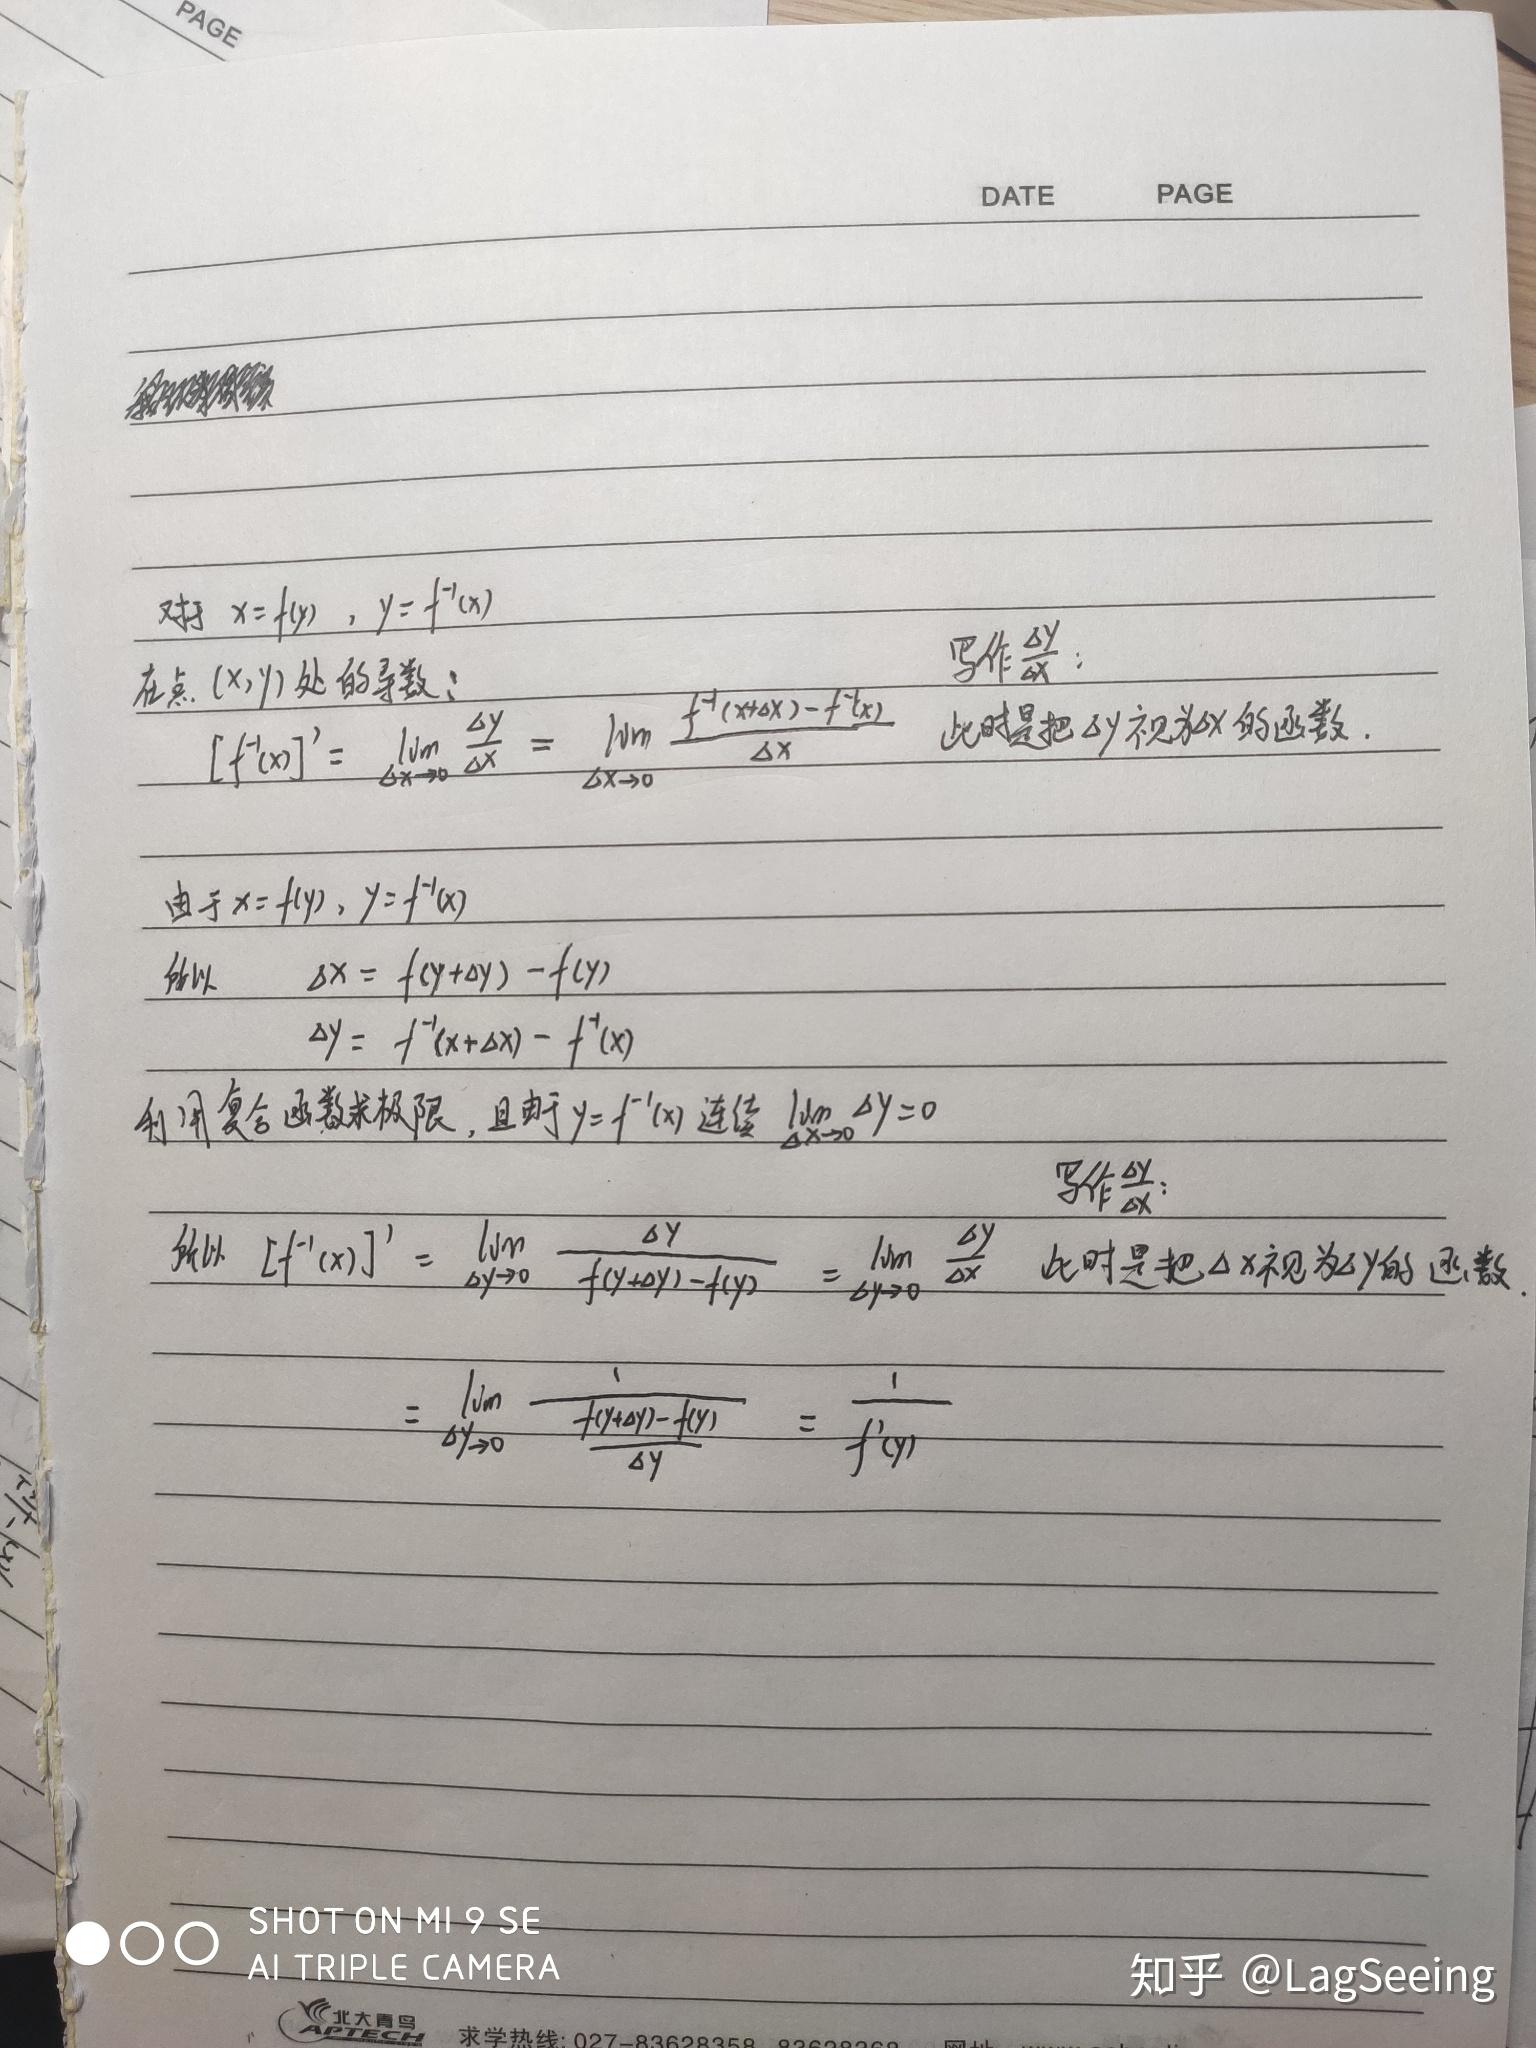 PAGE
DATE PAGE
对于 x=f(y) , y=f⁻¹(x)
在点 (x,y) 处的导数:
写作 Δy/Δx :
[f⁻¹(x)]' = lim Δx→0 Δy/Δx = lim Δx→0 (f⁻¹(x+Δx)-f⁻¹(x))/Δx 此时是把Δy视为Δx的函数.
由于 x=f(y), y=f⁻¹(x)
所以 Δx = f(y+Δy) - f(y)
Δy = f⁻¹(x+Δx) - f⁻¹(x)
利用复合函数求极限, 且由于 y=f⁻¹(x) 连续 lim Δx→0 Δy=0
写作 Δy/Δx :
所以 [f⁻¹(x)]' = lim Δy→0 Δy/(f(y+Δy)-f(y)) = lim Δy→0 Δy/Δx 此时是把Δx视为Δy的函数.
= lim Δy→0 1/((f(y+Δy)-f(y))/Δy) = 1/f'(y)
SHOT ON MI 9 SE
AI TRIPLE CAMERA
知乎 @LagSeeing
北大青鸟
APTECH
求学热线: 027-83628358